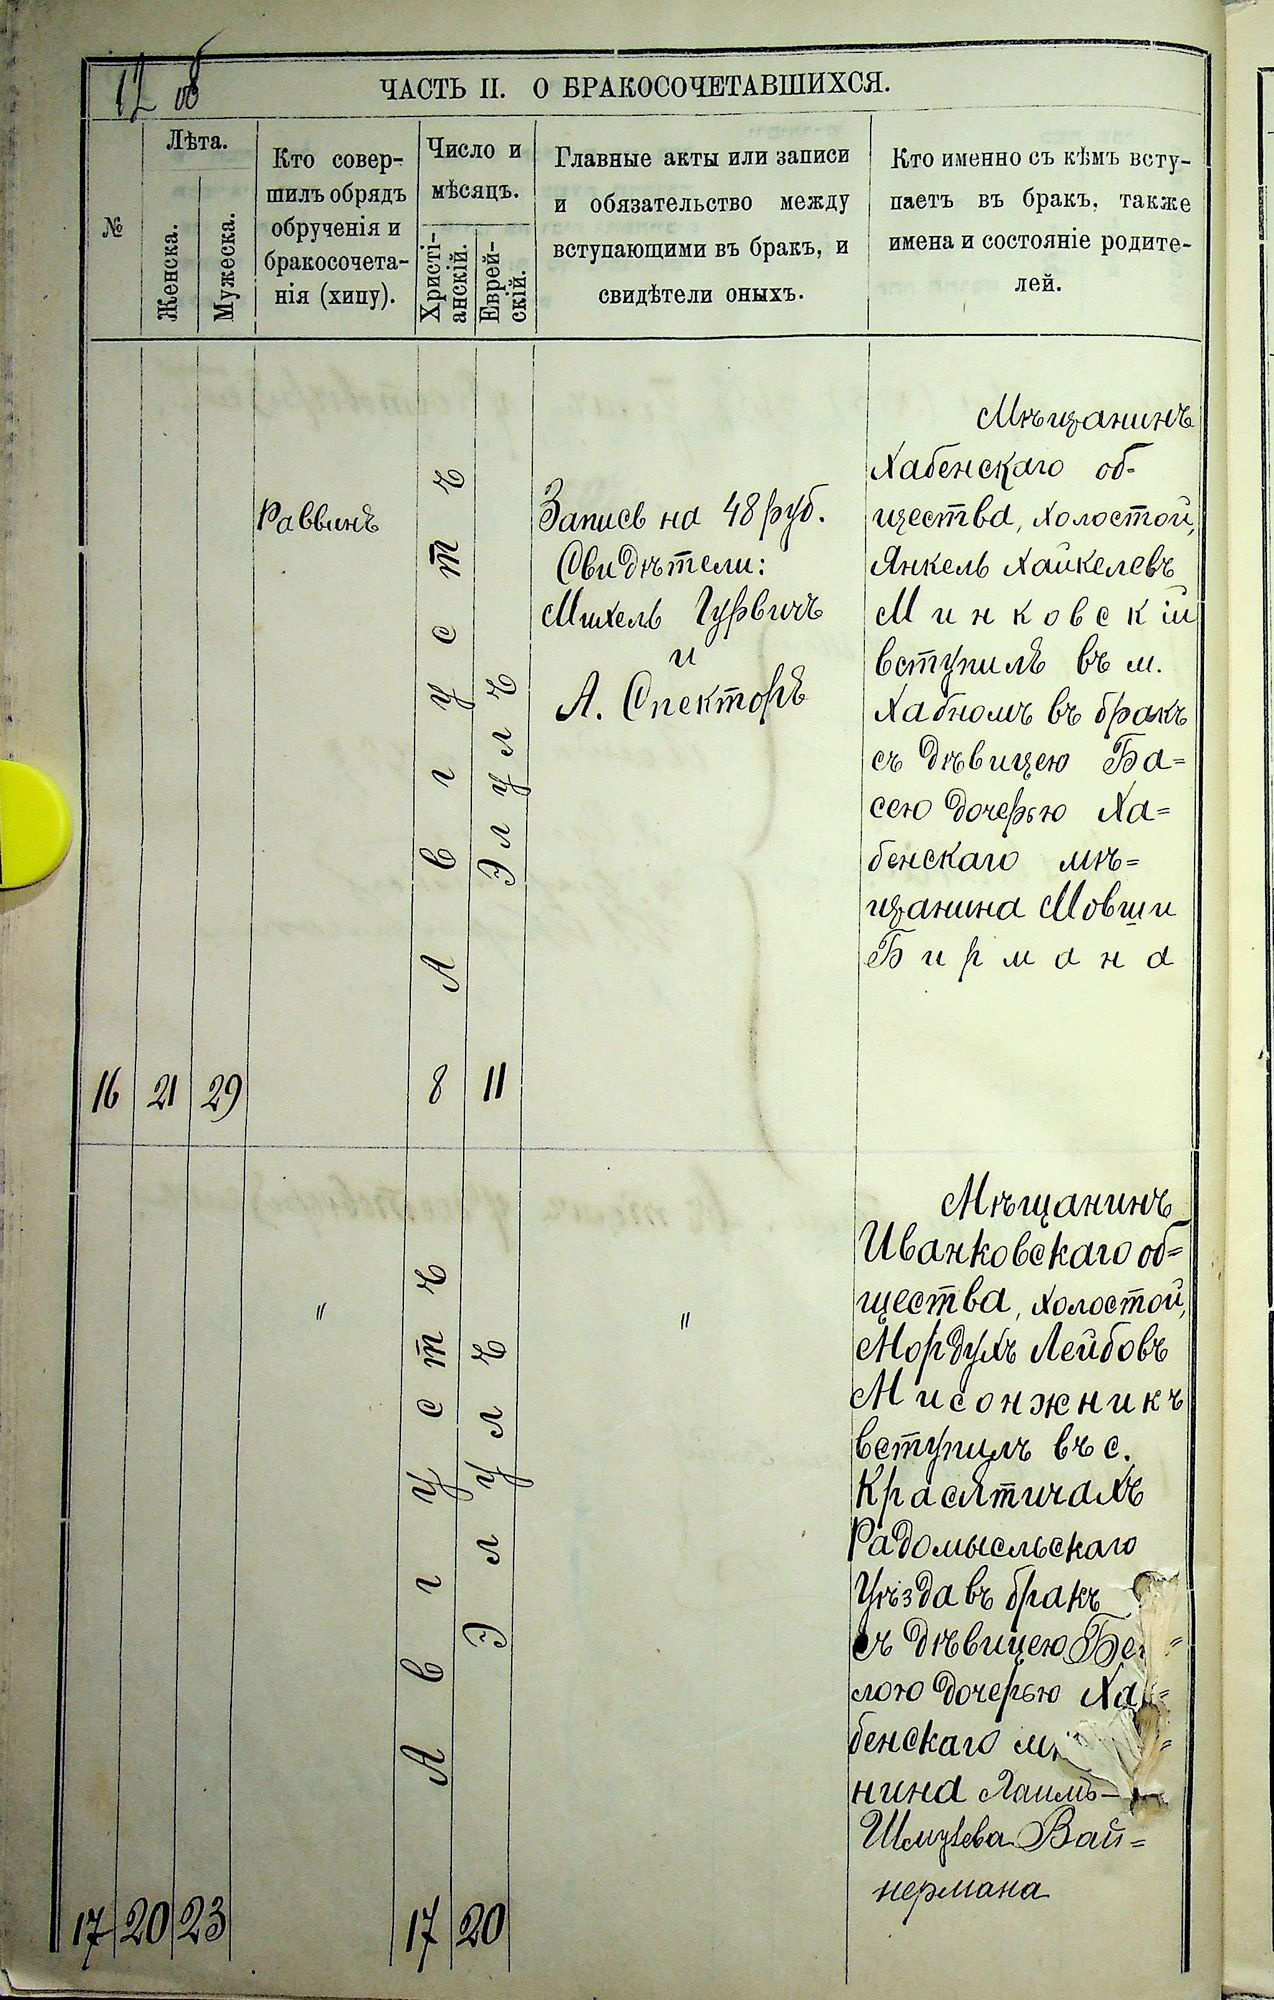 12 об
ЧАСТЬ II. О БРАКОСОЧЕТАВШИХСЯ.
№
Лѣта.
Женска.
Мужеска.
Кто совер-
шилъ обрядъ
обрученія и
бракосочета-
нія (хипу).
Число и
мѣсяцъ.
Христі-
анскій.
Еврей-
скій.
Главные акты или записи
и обязательство между
вступающими въ бракъ, и
свидѣтели оныхъ.
Кто именно съ кѣмъ всту-
паетъ въ бракъ, также
имена и состояніе родите-
лей.
16
21
29
Раввинъ
8
Августъ
11
Элулъ
Запись на 48 руб.
Свидѣтели:
Михель Гурвичъ
и
А. Спекторъ
Мѣщанинъ
Хабенскаго об-
щества, холостой,
Янкель Хайкелевъ
Минковскій
вступилъ въ м.
Хабномъ въ бракъ
съ дѣвицею Ба=
сею дочерью Ха=
бенскаго мѣ=
щанина Мовши
Бирмана
17
20
23
"
17
Августъ
20
Элулъ
"
Мѣщанинъ
Иванковскаго об=
щества, холостой,
Мордухъ Лейбовъ
Мисонжникъ
вступилъ въ с.
Красятичахъ
Радомысльскаго
уѣзда въ бракъ
съ дѣвицею
лою дочерью Ха=
бенскаго
нина Хаимъ-
Шмулева Вай=
нермана